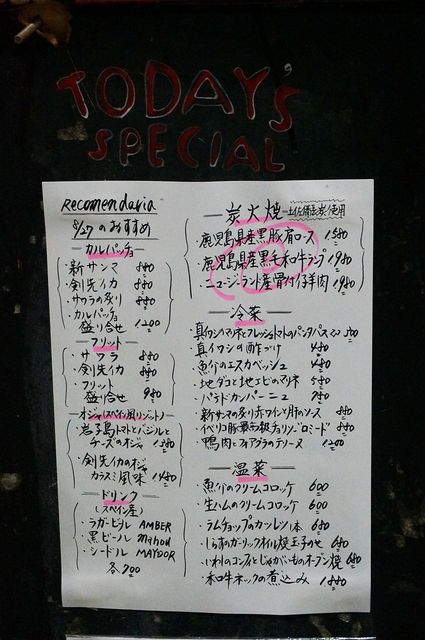 TODAY'S
SPECIAL
Recomendaria
8/27 のおすすめ
カルパッチョ
・新サンマ 880
・剣先イカ 880
・サワラの炙り 880
・カルパッチョ
盛り合せ 1200
フリット
・サワラ 880
・剣先イカ 880
・フリット
盛り合せ 980
オジャ(スペイン風リゾット)
・岩子島トマトとバジルと
チーズのオジャ 1380
・剣先イカのオジャ
カラスミ風味 1480
ドリンク
(スペイン産)
・ラガービール AMBER
・黒ビール Mahou
・シードル MAYDOR
各700
炭火焼 土佐備長炭使用
・鹿児島県産黒豚肩ロース 1580
・鹿児島県産黒毛和牛ランプ 1980
・ニュージーランド産骨付仔羊肉 1980
冷菜
・真イワシのマリネとフレッシュトマトの 500
・真イワシの酢づけ 480
・魚介のエスカベッシュ 480
・地ダコと地エビのマリネ 580
・パテドカンパーニュ
・新サンマの炙り赤ワインと肝のソース 880
・イベリコ豚最高級チョリソ・ロミード 880
・鴨肉とフォアグラのテリーヌ 1200
温菜
・魚介のクリームコロッケ 600
・生ハムのクリームコロッケ 600
・ラムチョップのカツレツ1本 680
・しらすのガーリックオイル焼玉子のせ 680
・いわしのコンフィとじゃがいものオーブン焼 680
・和牛ホックの煮込み 1880